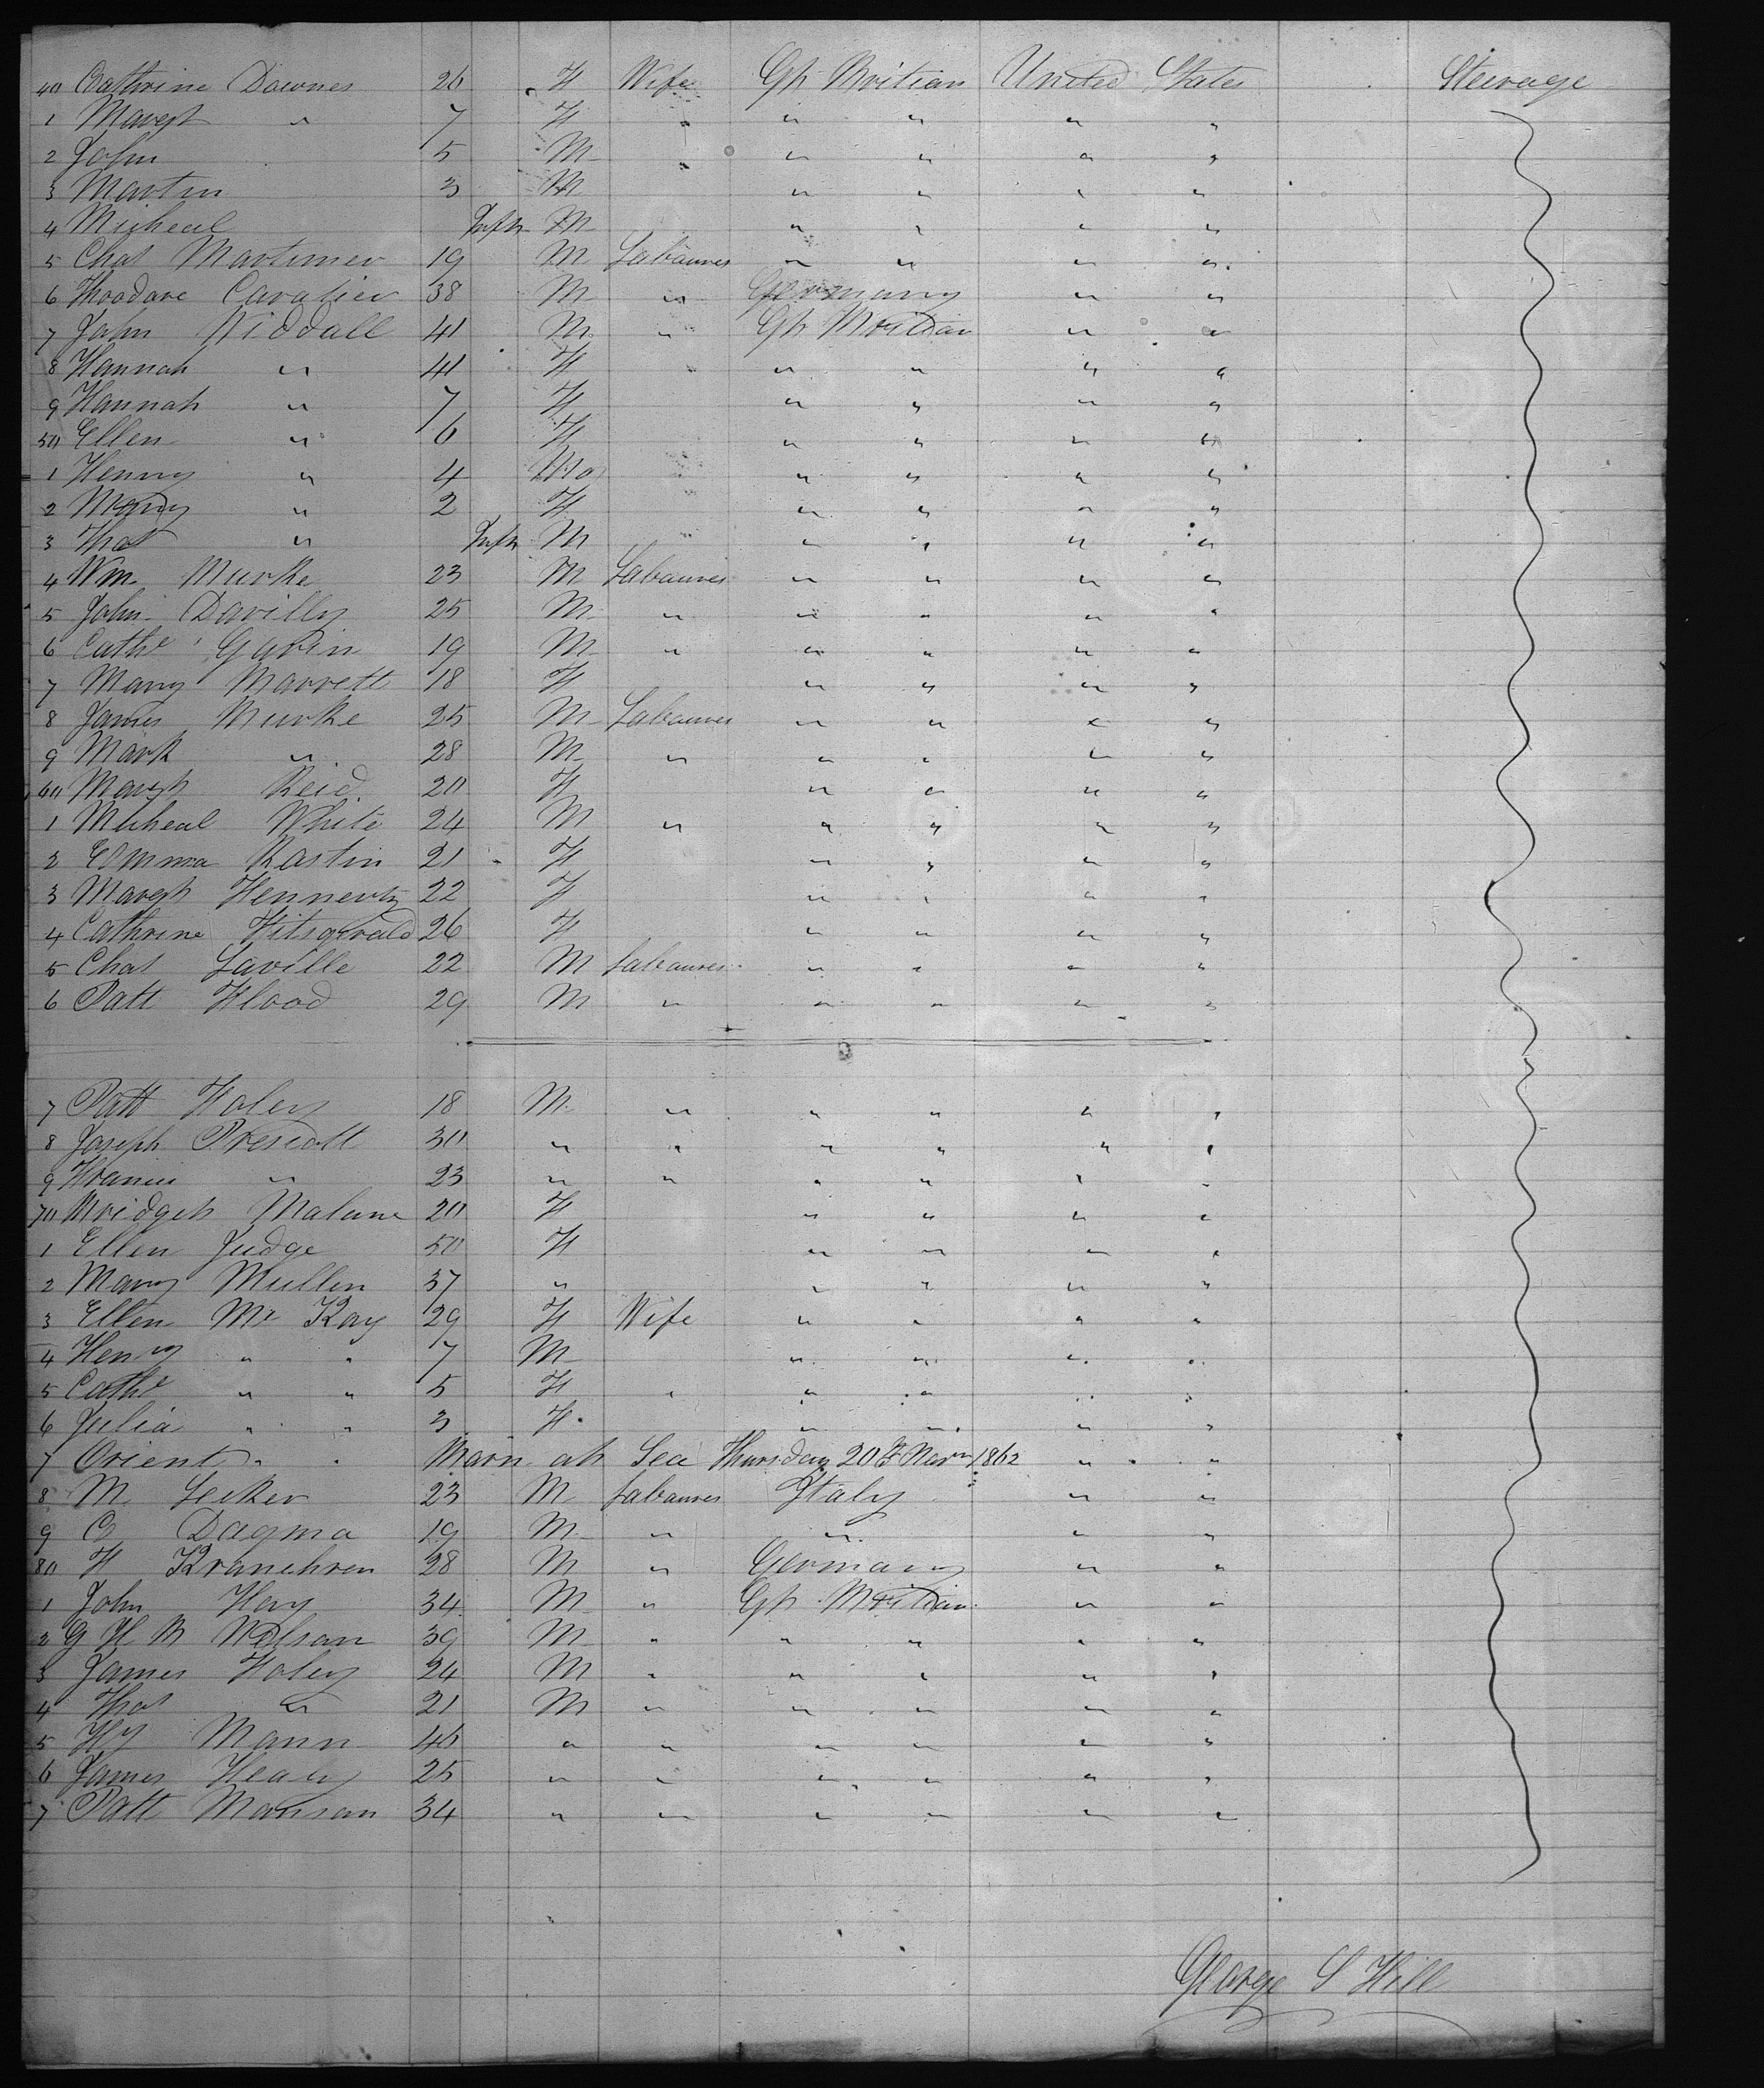 40 Cathrine Downes 26 F Wife Gt Britian United States Steerage
1 Margt " 7 F " " " "
2 John 5 M " " " "
3 Martin 3 M " " " "
4 Micheal Inft M " " " "
5 Chas Mortimer 19 M Labourer " " " "
6 Theodore Cavalier 38 M " Germany " "
7 John Widdall 41 M " Gt Britian " "
8 Hannah " 41 F " " " "
9 Hannah " 7 F " " " "
50 Ellen " 6 F " " " "
1 Henry " 4 M " " " "
2 Mary " 2 F " " " "
3 Thos " Inft M " " " "
4 Wm Burke 23 M Labourer " " " "
5 John Davilly 25 M " " " " "
6 Cathe Gavin 19 M " " " " "
7 Mary Barrett 18 F " " " "
8 James Burke 25 M Labourer " " " "
9 Mark " 28 M " " " " "
60 Margt Reid 20 F " " " "
1 Micheal White 24 M " " " " "
2 Emma Rastin 21 F " " " "
3 Margt 22 F " " " "
4 Cathrine Fitsgerald 26 F " " " "
5 Chas Laville 22 M Labourer " " " "
6 Patt Flood 29 M " " " " "
7 Patt Foley 18 M " " " " "
8 Joseph Prescott 30 " " " " " "
9 Francis " 23 " " " " " "
70 Bridget Malone 20 F " " " "
1 Ellen Judge 50 F " " " "
2 Mary Mullen 37 " " " " "
3 Ellen Mc Kay 29 F Wife " " " "
4 Henry " " 7 M " " " "
5 Cathe " " 5 F " " " "
6 Julia " " 3 F " " " "
7 Orient " " Born at Sea Thursday 20th Novr 1862 " "
8 M Lecker 23 M Labourer Italy " "
9 G Dagma 19 M " " " "
80 F Kranehren 28 M " Germany " "
1 John Hay 34 M " Gt Britian " "
2 G H B Nelson 39 M " " " " "
3 James Foley 24 M " " " " "
4 Thos " 21 M " " " " "
5 Hy Mann 46 " " " " " "
6 James Healy 25 " " " " " "
7 Patt 34 " " " " " "
George S Hill